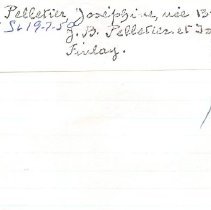 Pelletier, Joséphine, née
St 19-7-50 J. B. Pelletier et
Finlay.